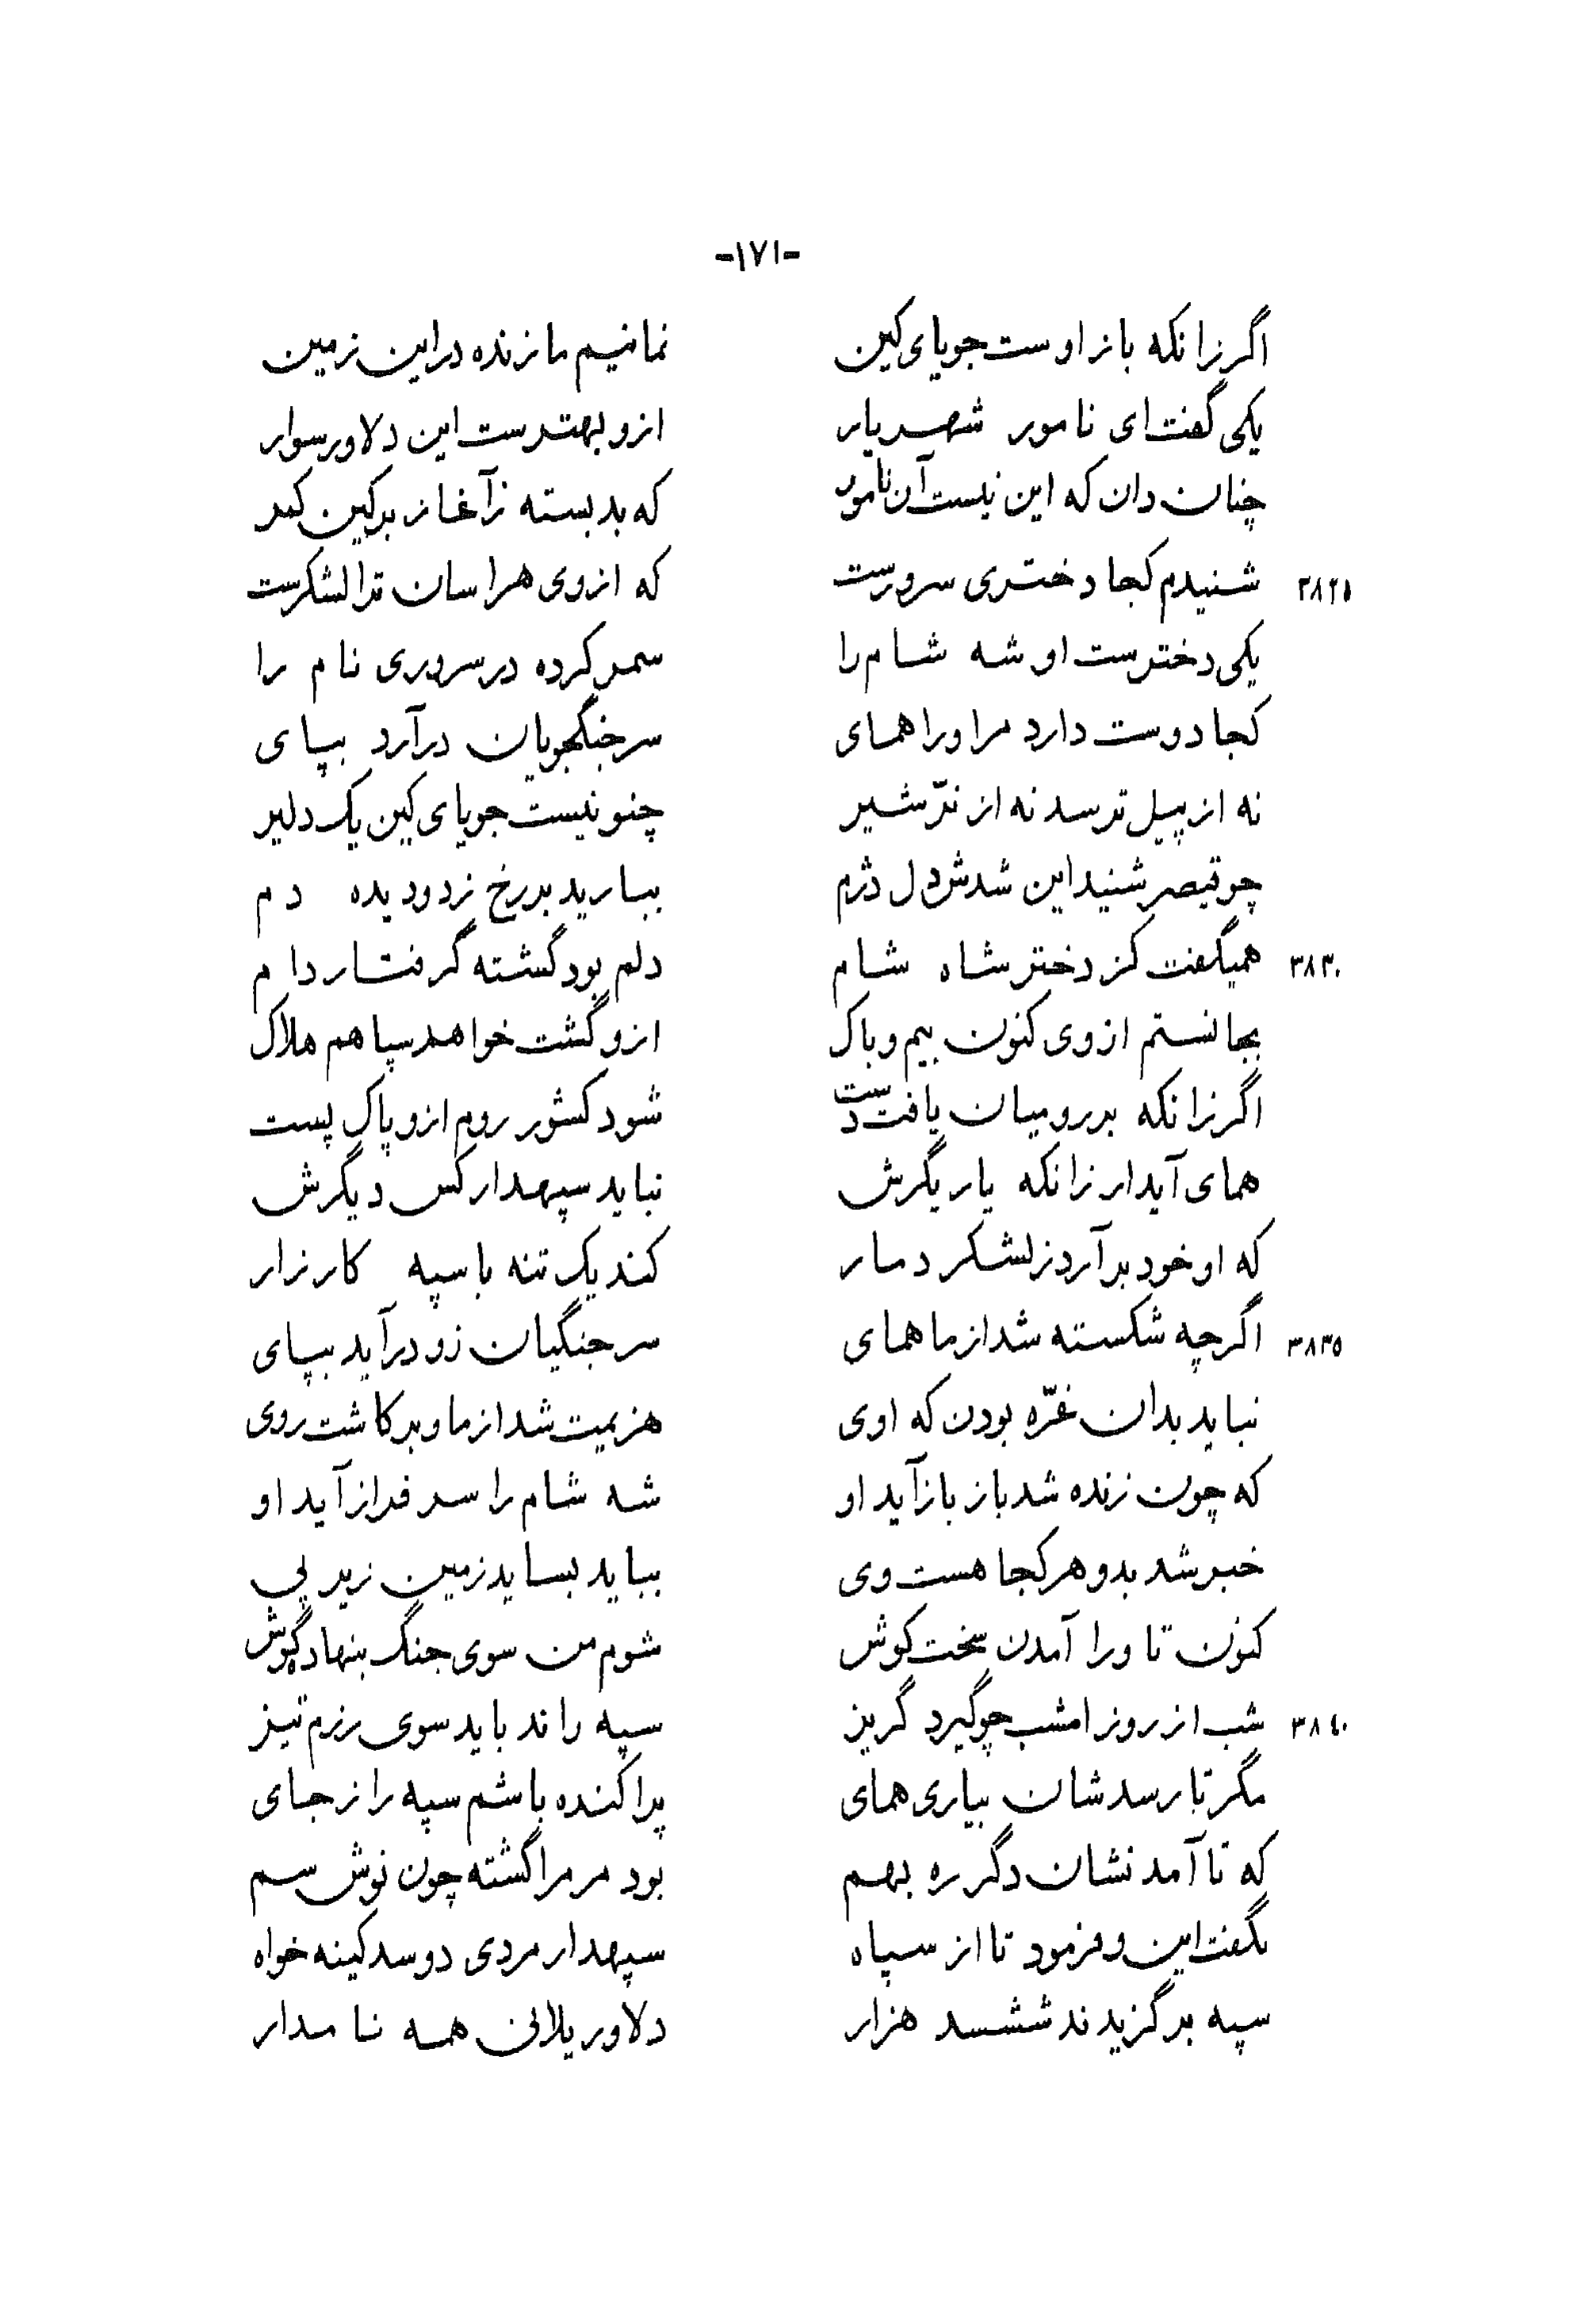 -۱۷۱-
اگر زانکه باز اوست جویای کین نمانیم ما زنده در این زمین
یکی گفت ای نامور شهریار ازو بهترست این دلاور سوار
چنان دان که این نیست آن نامور که بد بسته زآغاز بر کین کمر
۳۸۲۵ شنیدم کجا دختری سرورست که از وی هراسان ترا لشکرست
یکی دخترست او شه شام را سمر کرده در سروری نام را
کجا دوست دارد مر او را همای سر جنگجویان درآرد بپای
نه از پیل ترسد نه از نرّ شیر چنو نیست جویای کین یک دلیر
چو قیصر شنید این شدش دل دژم ببارید بر رخ ز دو دیده دم
۳۸۳۰ همیگفت کز دختر شاه شام دلم بود گشته گرفتار دام
بجانستم از وی کنون بیم و باک ازو گشت خواهد سپاهم هلاک
اگر زانکه بر رومیان یافت دست شود کشور روم ازو پاک پست
همای آید ار زانکه یاریگرش نباید سپهدار کس دیگرش
که او خود برآرد ز لشکر دمار کند یک تنه با سپه کارزار
۳۸۳۵ اگرچه شکسته شد از ما همای سر جنگیان زو درآید بپای
نباید بدان غرّه بودن که اوی هزیمت شد از ما و برکاشت روی
که چون زنده شد باز باز آید او شه شام را سر فراز آید او
خبر شد بدو هر کجا هست وی بیاید بساید زمین زیر پی
کنون تا ورا آمدن سخت کوش شوم من سوی جنگ بنهاده گوش
۳۸۴۰ شب از روز امشب چو گیرد گریز سپه راند باید سوی رزم تیز
مگر تا رسدشان بیاری همای پراکنده باشم سپه را ز جای
که تا آمد نشان دگر ره بهم بود مر مرا گشته چون نوش سم
بگفت این و فرمود تا از سپاه سپهدار مردی دوسد کینه خواه
سپه برگزیدند ششسد هزار دلاور یلانی همه نامدار